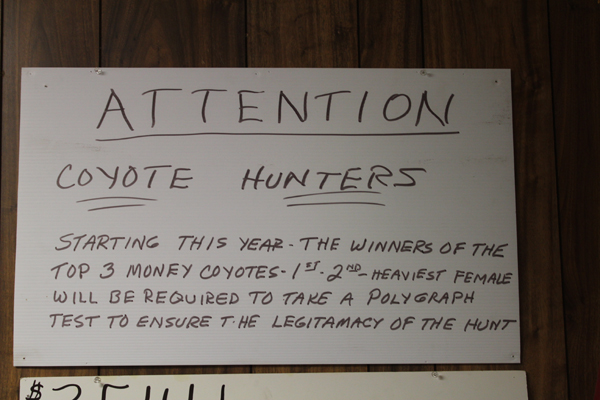 ATTENTION
COYOTE HUNTERS
STARTING THIS YEAR - THE WINNERS OF THE
TOP 3 MONEY COYOTES - 1ST - 2ND - HEAVIEST FEMALE
WILL BE REQUIRED TO TAKE A POLYGRAPH
TEST TO ENSURE THE LEGITAMACY OF THE HUNT